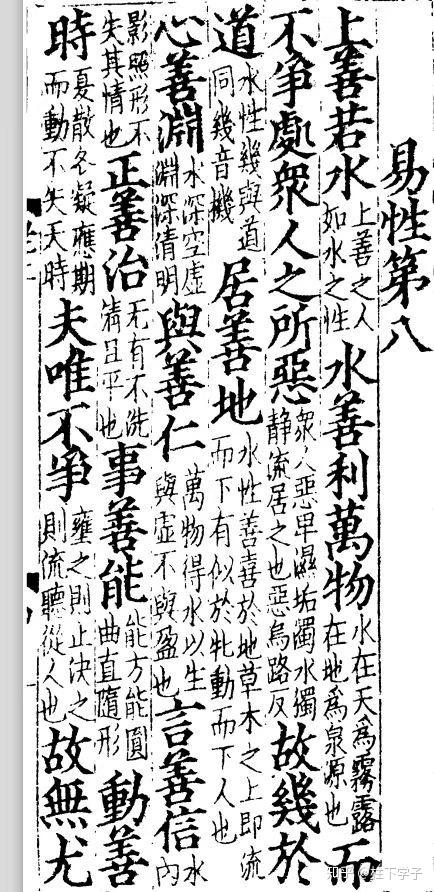 易性第八
上善若水上善之人如水之性水善利萬物水在天為霧露在地為泉源也而
不爭處眾人之所惡眾人惡卑濕垢濁水獨静流居之也惡烏路反故幾於
道水性幾與道同幾音機居善地水性善喜於地草木之上即流而下有似於牝動而下人也
心善淵水深空虛淵深清明與善仁萬物得水以生與虛不與盈也言善信水內
影照形不失其情也正善治无有不洗清且平也事善能能方能圓曲直隨形動善
時夏散冬凝應期而動不失天時夫唯不爭壅之則止決之則流聽從人也故無尤
知乎 @柱下学子